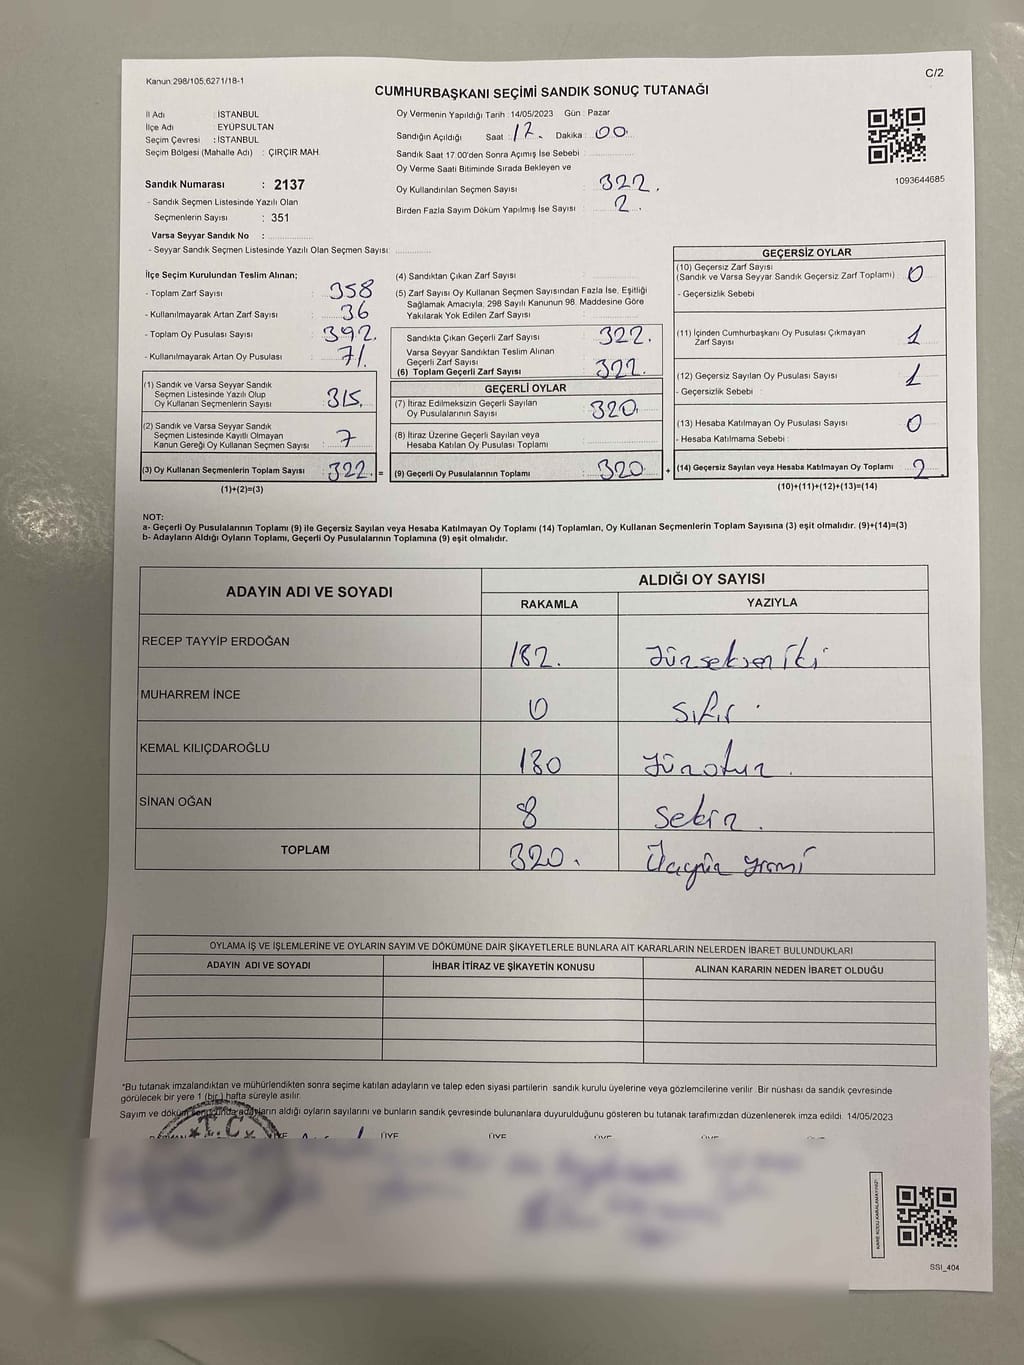 Kanun:298/105,6271/18-1
C/2
CUMHURBAŞKANI SEÇİMİ SANDIK SONUÇ TUTANAĞI
İl Adı : İSTANBUL
İlçe Adı : EYÜPSULTAN
Seçim Çevresi : İSTANBUL
Seçim Bölgesi (Mahalle Adı) : ÇIRÇIR MAH.
Sandık Numarası : 2137
- Sandık Seçmen Listesinde Yazılı Olan
Seçmenlerin Sayısı : 351
Varsa Seyyar Sandık No :
- Seyyar Sandık Seçmen Listesinde Yazılı Olan Seçmen Sayısı:
Oy Vermenin Yapıldığı Tarih : 14/05/2023 Gün : Pazar
Sandığın Açıldığı Saat : 17. Dakika : 00
Sandık Saat 17:00'den Sonra Açımış İse Sebebi :
Oy Verme Saati Bitiminde Sırada Bekleyen ve
Oy Kullandırılan Seçmen Sayısı 322.
Birden Fazla Sayım Döküm Yapılmış İse Sayısı 2.
1093644685
İlçe Seçim Kurulundan Teslim Alınan;
- Toplam Zarf Sayısı : 358
- Kullanılmayarak Artan Zarf Sayısı : 36
- Toplam Oy Pusulası Sayısı : 392.
- Kullanılmayarak Artan Oy Pusulası : 71.
(1) Sandık ve Varsa Seyyar Sandık
Seçmen Listesinde Yazılı Olup
Oy Kullanan Seçmenlerin Sayısı : 315.
(2) Sandık ve Varsa Seyyar Sandık
Seçmen Listesinde Kayıtlı Olmayan
Kanun Gereği Oy Kullanan Seçmen Sayısı : 7
(3) Oy Kullanan Seçmenlerin Toplam Sayısı 322. =
(1)+(2)=(3)
(4) Sandıktan Çıkan Zarf Sayısı
(5) Zarf Sayısı Oy Kullanan Seçmen Sayısından Fazla İse, Eşitliği
Sağlamak Amacıyla, 298 Sayılı Kanunun 98. Maddesine Göre
Yakılarak Yok Edilen Zarf Sayısı :
Sandıkta Çıkan Geçerli Zarf Sayısı 322.
Varsa Seyyar Sandıktan Teslim Alınan
Geçerli Zarf Sayısı
(6) Toplam Geçerli Zarf Sayısı 322.
GEÇERLİ OYLAR
(7) İtiraz Edilmeksizin Geçerli Sayılan
Oy Pusulalarının Sayısı 320.
(8) İtiraz Üzerine Geçerli Sayılan veya
Hesaba Katılan Oy Pusulası Toplamı
(9) Geçerli Oy Pusulalarının Toplamı 320 +
GEÇERSİZ OYLAR
(10) Geçersiz Zarf Sayısı
(Sandık ve Varsa Seyyar Sandık Geçersiz Zarf Toplamı) 0
- Geçersizlik Sebebi :
(11) İçinden Cumhurbaşkanı Oy Pusulası Çıkmayan
Zarf Sayısı 1
(12) Geçersiz Sayılan Oy Pusulası Sayısı 1
- Geçersizlik Sebebi :
(13) Hesaba Katılmayan Oy Pusulası Sayısı 0
- Hesaba Katılmama Sebebi :
(14) Geçersiz Sayılan veya Hesaba Katılmayan Oy Toplamı 2.
(10)+(11)+(12)+(13)=(14)
NOT:
a- Geçerli Oy Pusulalarının Toplamı (9) ile Geçersiz Sayılan veya Hesaba Katılmayan Oy Toplamı (14) Toplamları, Oy Kullanan Seçmenlerin Toplam Sayısına (3) eşit olmalıdır. (9)+(14)=(3)
b- Adayların Aldığı Oyların Toplamı, Geçerli Oy Pusulalarının Toplamına (9) eşit olmalıdır.
ADAYIN ADI VE SOYADI
ALDIĞI OY SAYISI
RAKAMLA YAZIYLA
RECEP TAYYİP ERDOĞAN 182. Yüzseksen iki
MUHARREM İNCE 0 Sıfır.
KEMAL KILIÇDAROĞLU 130 Yüzotuz.
SİNAN OĞAN 8 Sekiz.
TOPLAM 320. Üçyüz yirmi
OYLAMA İŞ VE İŞLEMLERİNE VE OYLARIN SAYIM VE DÖKÜMÜNE DAİR ŞİKAYETLERLE BUNLARA AİT KARARLARIN NELERDEN İBARET BULUNDUKLARI
ADAYIN ADI VE SOYADI İHBAR İTİRAZ VE ŞİKAYETİN KONUSU ALINAN KARARIN NEDEN İBARET OLDUĞU
*Bu tutanak imzalandıktan ve mühürlendikten sonra seçime katılan adayların ve talep eden siyasi partilerin sandık kurulu üyelerine veya gözlemcilerine verilir. Bir nüshası da sandık çevresinde
görülecek bir yere 1 (bir) hafta süreyle asılır.
Sayım ve döküm sonucunda adayların aldığı oyların sayılarını ve bunların sandık çevresinde bulunanlara duyurulduğunu gösteren bu tutanak tarafımızdan düzenlenerek imza edildi. 14/05/2023
T.C.
ÜYE ÜYE ÜYE ÜYE ÜYE
SSI_404